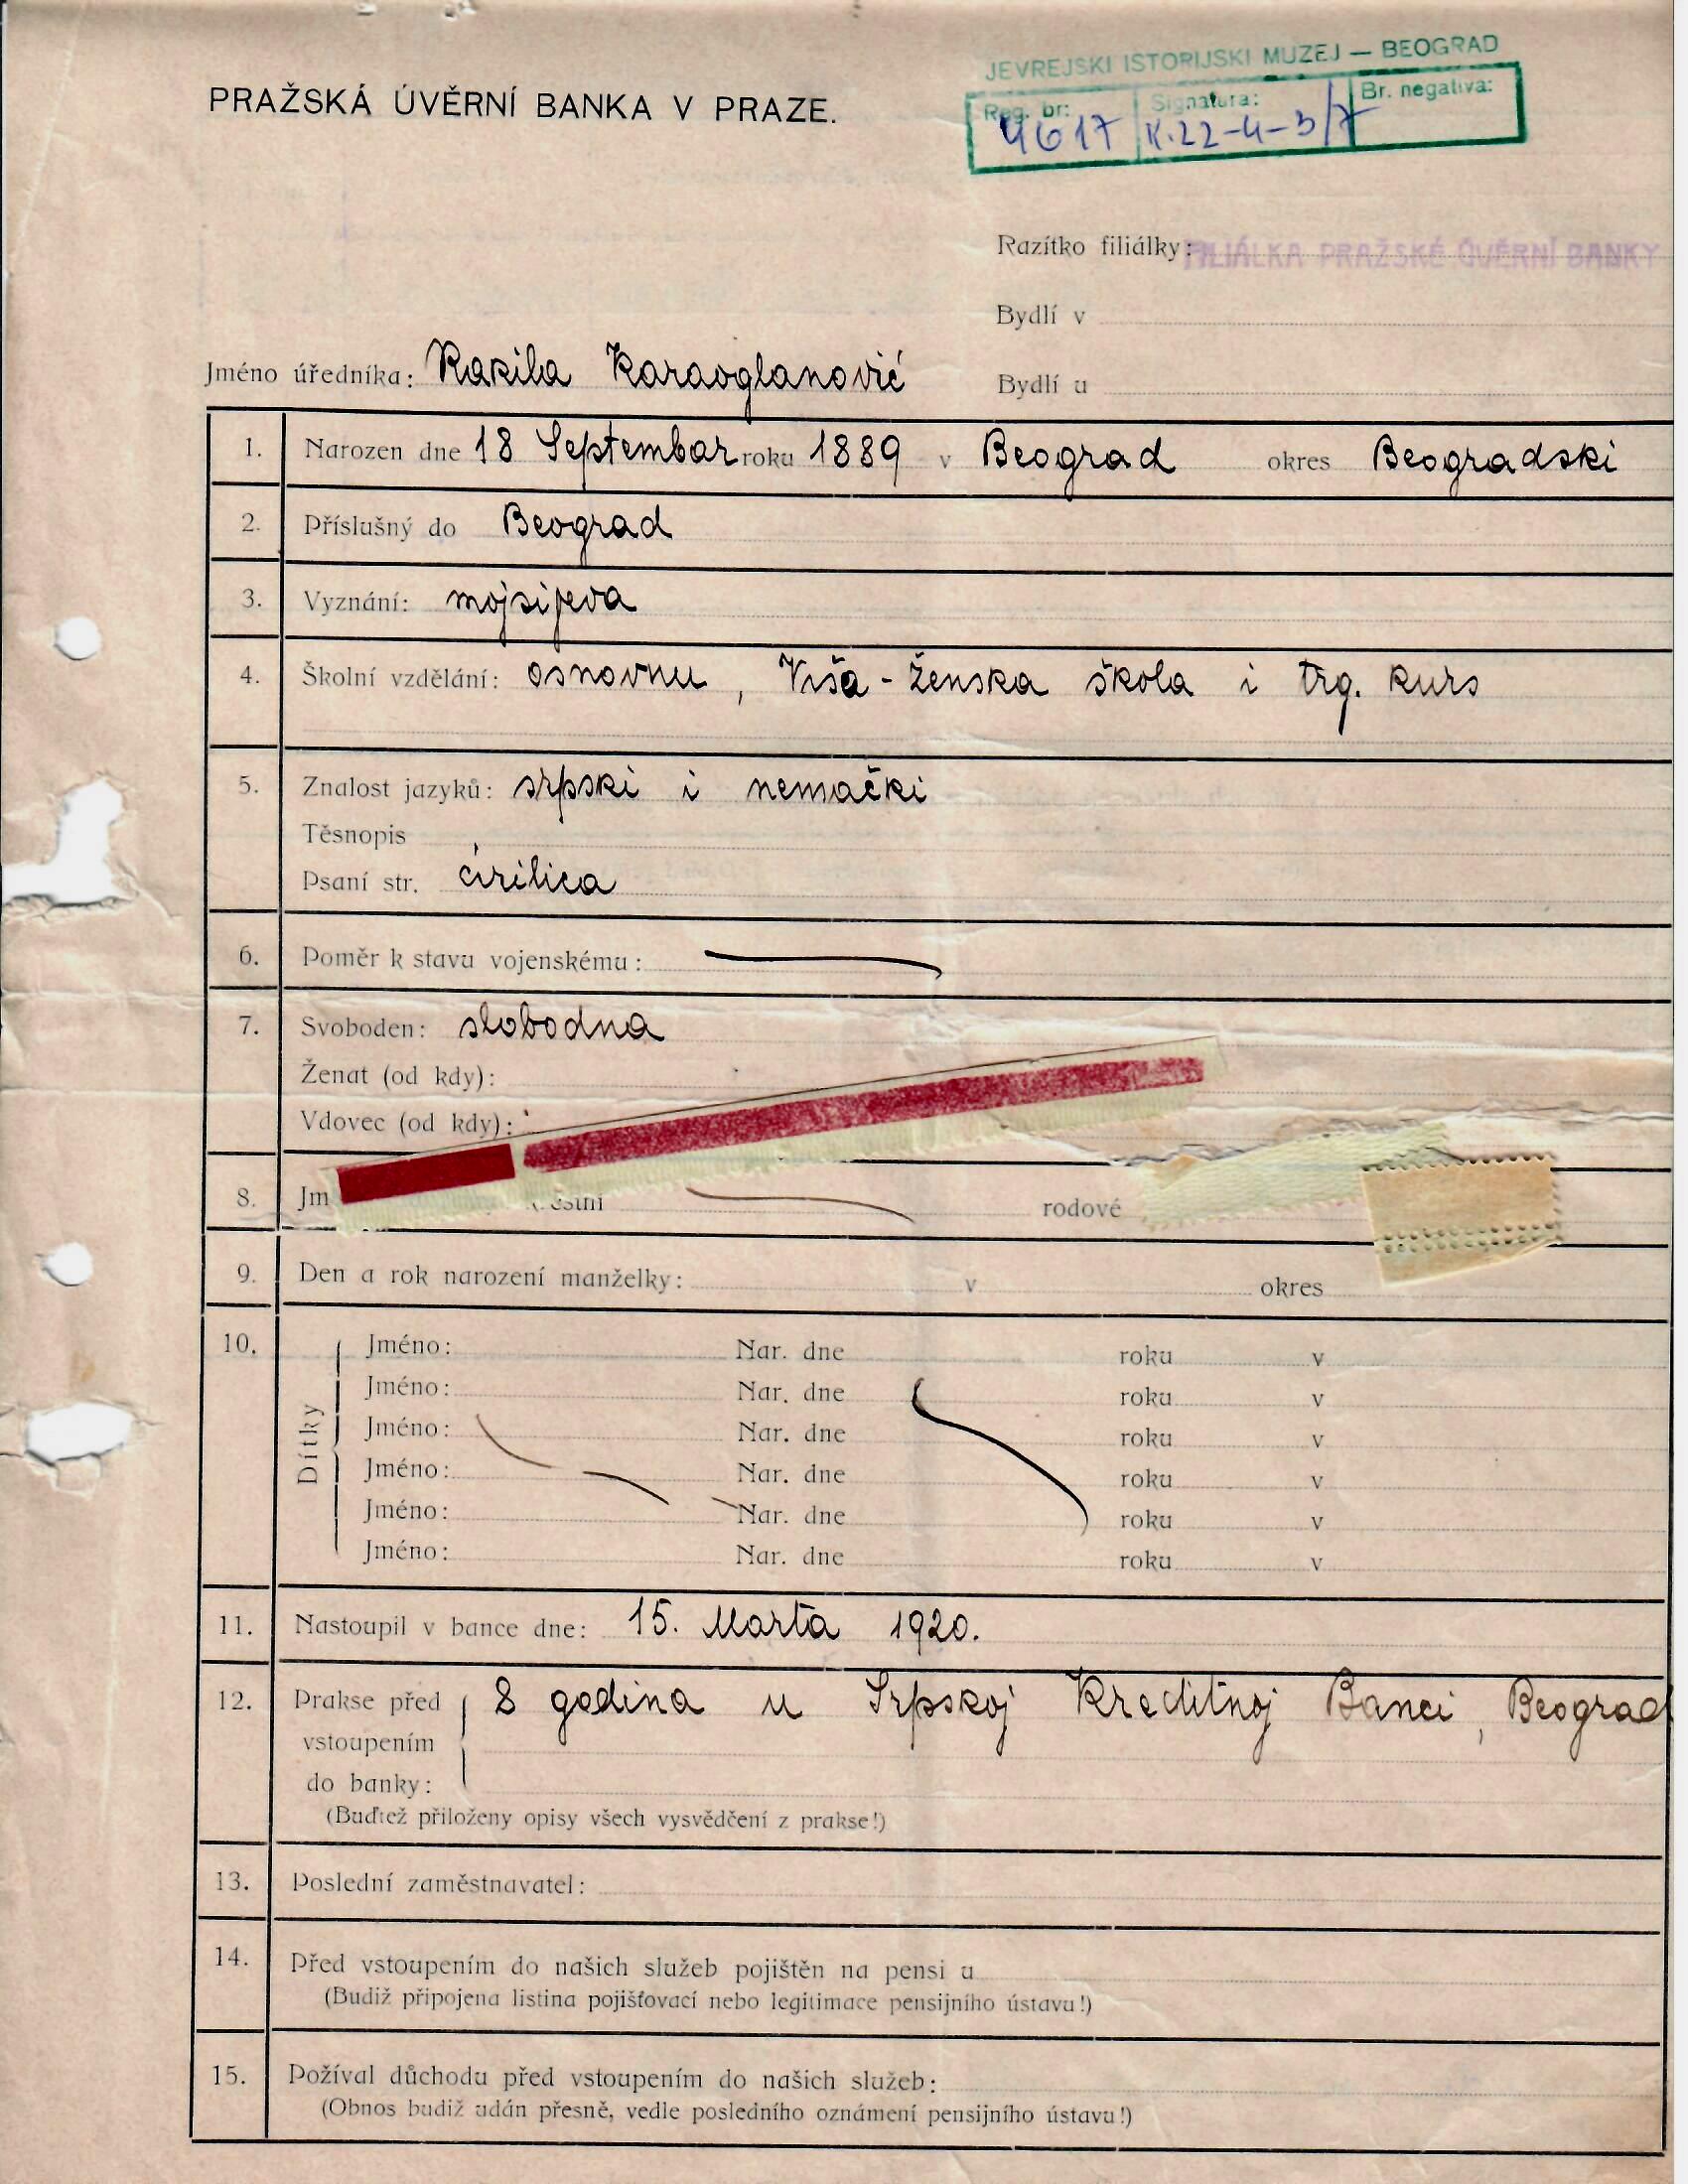 JEVREJSKI ISTORIJSKI MUZEJ — BEOGRAD
Reg. br: Signatura: Br. negativa:
4617 K.22-4-3/7
PRAŽSKÁ ÚVĚRNÍ BANKA V PRAZE.
Razítko filiálky: FILIÁLKA PRAŽSKÉ ÚVĚRNÍ BANKY
Bydlí v
Jméno úředníka: Rakila Karaoglanović
Bydlí u
1. Narozen dne 18 Septembar roku 1889 v Beograd okres Beogradski
2. Příslušný do Beograd
3. Vyznání: mojsijeva
4. Školní vzdělání: osnovnu, Viša-ženska škola i trg. kurs
5. Znalost jazyků: srpski i nemački
Těsnopis
Psaní str. ćirilica
6. Poměr k stavu vojenskému:
7. Svoboden: slobodna
Ženat (od kdy):
Vdovec (od kdy):
8. Jm rodové
9. Den a rok narození manželky: v okres
10. Dítky
Jméno: Nar. dne roku v
Jméno: Nar. dne roku v
Jméno: Nar. dne roku v
Jméno: Nar. dne roku v
Jméno: Nar. dne roku v
Jméno: Nar. dne roku v
11. Nastoupil v bance dne: 15. Marta 1920.
12. Prakse před 8 godina u Srpskoj Kreditnoj Banci, Beograd
vstoupením
do banky:
(Buďtež přiloženy opisy všech vysvědčení z prakse!)
13. Poslední zaměstnavatel:
14. Před vstoupením do našich služeb pojištěn na pensi u
(Budiž připojena listina pojišťovací nebo legitimace pensijního ústavu!)
15. Požíval důchodu před vstoupením do našich služeb:
(Obnos budiž udán přesně, vedle posledního oznámení pensijního ústavu!)